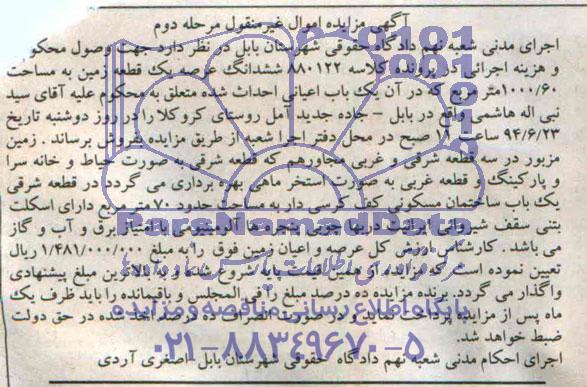 آگهی مزایده اموال غیرمنقول مرحله دوم
اجرای مدنی شعبه نهم دادگاه حقوقی شهرستان بابل در نظر دارد جهت وصول محکوم
و هزینه اجرائی در پرونده کلاسه ۸۸۰۱۲۲ ششدانگ عرصه یک قطعه زمین به مساحت
۱۰۰۰/۶۰متر مربع که در آن یک باب اعیانی احداث شده متعلق به محکوم علیه آقای سید
نبی اله هاشمی واقع در بابل - جاده جدید آمل روستای کروکلا را در روز دوشنبه تاریخ
۹۴/۶/۲۳ ساعت صبح در محل دفتر اجرا شعبه از طریق مزایده بفروش برساند . زمین
مزبور در سه قطعه شرقی و غربی مجاورهم که قطعه شرقی به صورت حیاط و خانه سرا
و پارکینگ و قطعه غربی به صورت استخر ماهی بهره برداری می گردد در قطعه شرقی
یک باب ساختمان مسکونی کرسی دار به مساحت حدود ۷۰ متر مربع دارای اسکلت
بتنی سقف شیروانی ایرانیت دربها چوبی پنجره ها آلومینیومی با امتیاز برق و آب و گاز
می باشد . کارشناس ارزش کل عرصه و اعیان زمین فوق را به مبلغ ۱/۴۸۱/۰۰۰/۰۰۰ ریال
تعیین نموده است که مزایده از همین قیمت پایه شروع شده و به بالاترین مبلغ پیشنهادی
واگذار می گردد. برنده مزایده ده درصد مبلغ را فی المجلس و باقیمانده را باید ظرف یک
ماه پس از مزایده پرداخت نماید و در صورت انصراف ده درصد اخذ شده در حق دولت
ضبط خواهد شد.
اجرای احکام مدنی شعبه نهم دادگاه حقوقی شهرستان بابل - اصغری آردی
ParsNamadData
پایگاه اطلاع رسانی مناقصه و مزایده
۰۲۱-۸۸۳۴۹۶۷۰-۵